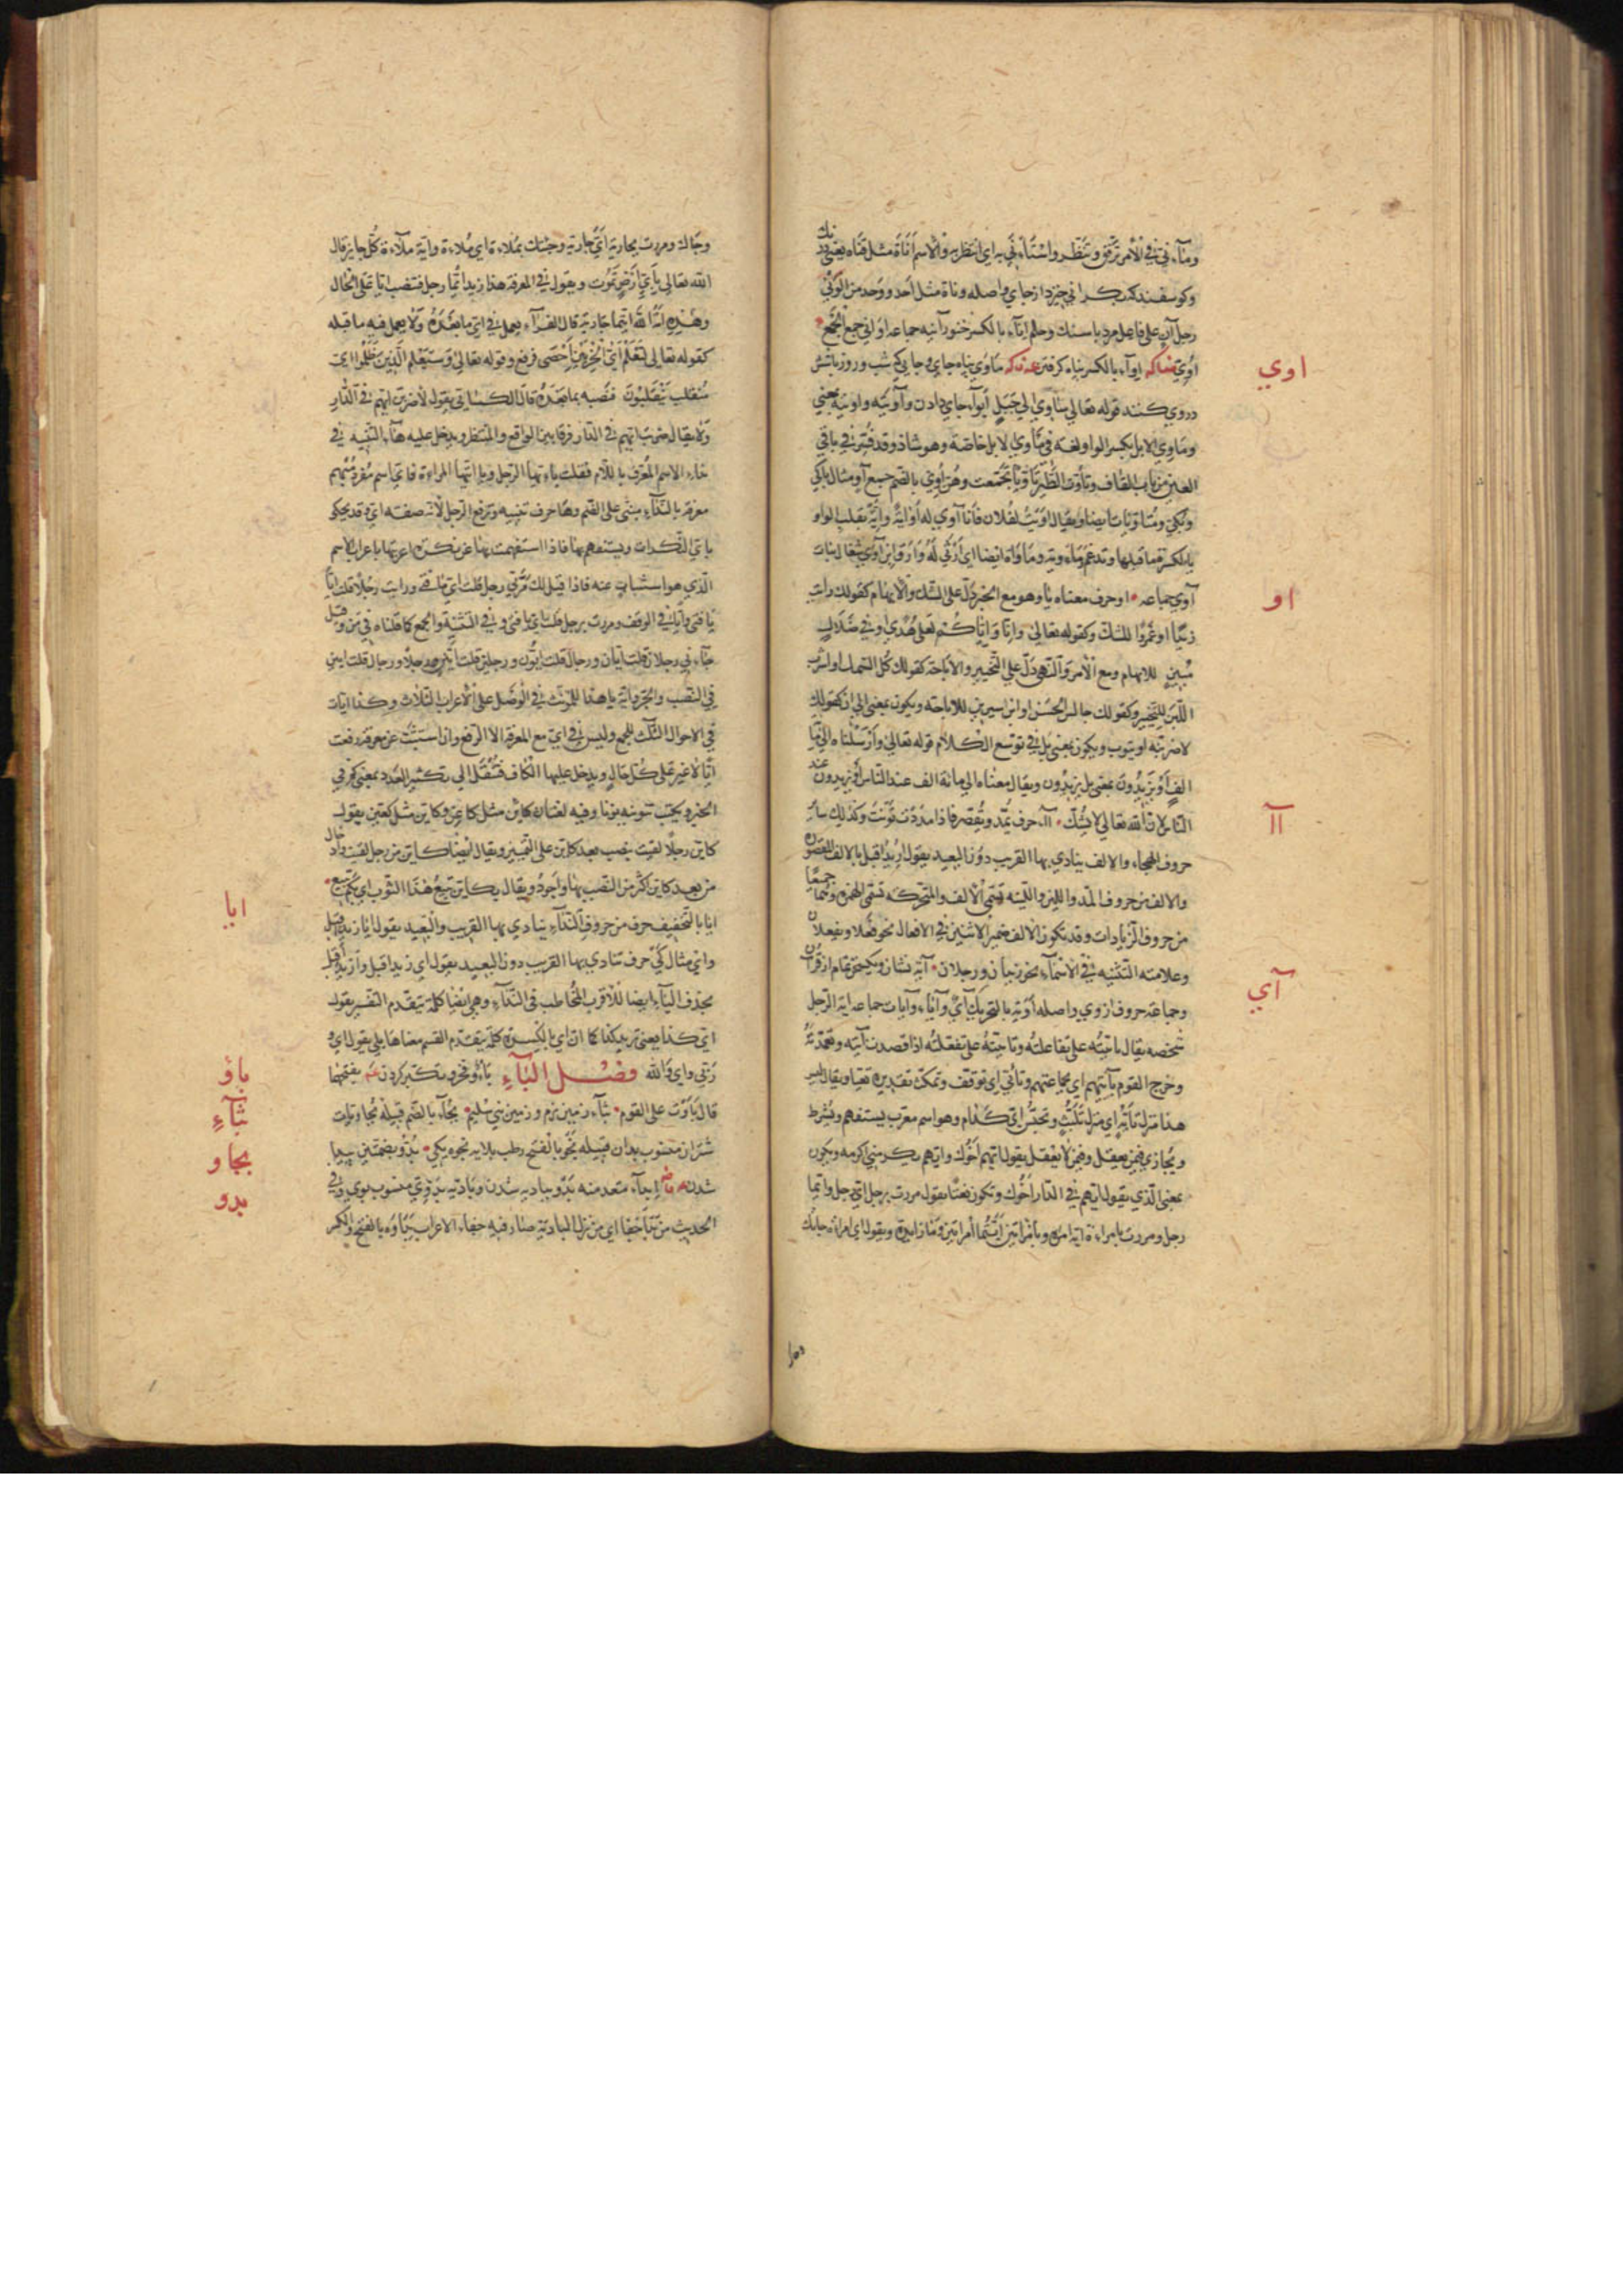 ومآء ني في الأمر ترفق وتنظر واستأني به اي انتظر به والاسم أناة مثل قناة يعني
وكوسفند كه بكراني خيزد از جاي واصله وناة مثل احد ووحد من الوني
رجل آن على فاعل مرد باسنك وحلم اناء بالكسر خنور آنيه جماعه اواني جمع الجمع
اوي
اوي ايواء بالكسر پناه كرفتن ماوي پناه جاي وجايي كه شب وروز باشش
دروي كنند قوله تعالي ساوي الي جبل ايواء جاي دادن وآويته واويته بمعني
وماوي الابل بكسر الواو لغة في ماوي الابل خاصة وهو شاذ وقد فسر في باقي
العين من باب القاف وتأوت الطير تأويا تجمعت وهن اوي بالضم جمع آو مثال باكي
وبكي ومتاويات ايضا ويقال اويت لفلان فانا آوي له اواية واية بقلب الواو
ياء لكسرة ما قبلها وتدغم وماوية وماواة ايضا اي ارثي له وارق ابن آوي شغال بنات
آوي جماعه او حرف معناه يا وهو مع الخبر يدل على الشك والابهام كقولك رايت
او
زيدا او عمروا للشك وكقوله تعالى وانا واياكم لعلى هدى او في ضلال
مبين للابهام ومع الامر والنهي دل علي التخيير والاباحة كقولك كل السمك او اشرب
اللبن للتخيير وكقولك جالس الحسن او ابن سيرين للاباحة ويكون بمعنى الي ان كقولك
لاضربنه او يتوب ويكون بمعنى بل في توسع الكلام قوله تعالى وارسلناه الي مائة
الف او يزيدون بمعنى بل يزيدون ويقال معناه الي مائة الف عند الناس او يزيدون عند
الناس لان الله تعالي لا يشك آا حرف يمد ويقصر فاذا مددت نونت وكذلك سائر
آا
حروف الهجاء والالف ينادي بها القريب دون البعيد يقول ازيد اقبل بالالف المقصورة
والالف من حروف المد واللين واللينه تسمى الالف والمتحركه تسمى الهمزه وهما جميعا
من حروف الزيادات وقد تكون الالف ضمير الاثنين في الافعال نحو فعلا ويفعلان
وعلامته التثنيه في الاسماء نحو زيدان ورجلان آية نشان ويكسخن تمام از قرآن
آي
وجماعة حروف ازوي واصله أوية بالتحريك آي وآياء وآيات جماعه اية الرجل
شخصه يقال تاييته على تفاعلته وتاييته على تفعلته اذا قصدت آيته وتعمدته
وخرج القوم بآيتهم اي بجماعتهم وتأيي اي توقف وتمكث تقديره تعيا ويقال ليس
هذا منزل تأية اي منزل تلبث وتحبس اي كدام وهو اسم معرب يستفهم ويشرط
ويجازي فيمن يعقل وفيمن لا يعقل يقول ايهم اخوك وايهم يكرمني اكرمه ويكون
بمعنى الذي يقول ايهم في الدار اخوك وتكون نعتا يقول مررت برجل اي رجل وايما
رجل ومررت بامراءة اية امراه وبامراتين ايتما امراتين وما زايدة ويقول اي امراة جاءتك
وجاك ومررت بجارية اي جارية وجئتك بملاءة اي ملاءة واية ملاءة كل جايز قال
الله تعالى باي ارض تموت ويقول في المعرفة هذا زيد ايما رجل فتنصب ايا على الحال
وهذه امة الله ايتما جارية قال الفراء يعمل في اي ما بعده ولا يعمل فيه ما قبله
كقوله تعالى لنعلم اي الحزبين احصى فرفع وقوله تعالى وسيعلم الذين ظلموا اي
منقلب ينقلبون فنصبه بما بعده قال الكسائي يقول لاضربن ايهم في الدار
ولا يقال ضربت ايهم في الدار فرقا بين الواقع والمنتظر ويدخل عليه هاء التنبيه في
نداء الاسم المعرف باللام فقلت يا ايها الرجل ويا ايتها المراءة فاي اسم مفرد مبهم
معرفة بالنداء مبني على الضم وها حرف تنبيه وترفع الرجل لانه صفة اي وقد يحكى
باي النكرات ويستفهم بها فاذا استفهمت بها عن نكرة اعربتها باعراب الاسم
الذي هو استثبات عنه فاذا قيل لك مر بي رجل قلت اي يا فتى ورايت رجلا قلت ايا
يا فتى وايا في الوقف ومررت برجل قلت اي يا فتى وفي التثنية والجمع كما قلناه في من وقيل
جاء ني رجلان قلت ايان ورجال قلت ايون ورجلين قلت ايين ورجال قلت ايين
في النصب والجر واية يا هذا للمؤنث في الوصل على الاعراب الثلاث وكذا ايات
في الاحوال الثلث للجمع وليس في اي مع المعرفة الا الرفع وان استثبت عن معرفة رفعت
ايا لا غير على كل حال ويدخل عليها الكاف فتنقل الي تكثير العدد بمعنى كم في
الخبر ويكتب تنوينه بنون وفيه لغتان كاين مثل كاعن وكاين مثل كعين يقول
كاين رجلا لقيت ينصب بعد كاين على التمييز ويقال ايضا كاين من رجل لقيت وادخال
من بعد كاين اكثر من النصب بها واجود ويقال بكاين تبيع هذا الثوب اي بكم تبيع
ايا
ايا بالتخفيف حرف من حروف النداء ينادي بها القريب والبعيد يقول ايا زيد اقبل
واي مثال كي حرف تنادي بها القريب دون البعيد يقول اي زيد اقبل وازيد اقبل
بحذف الياء ايضا للاقرب المخاطب في النداء وهي ايضا كلمة تتقدم التفسير يقول
اي كذا بمعنى تريد كذا كما ان اي بالكسرة كلمة تتقدم القسم معناها بلي يقول اي و
ربي واي والله فصل الباء باؤ فخر وتكبر كردن بفتحها
باؤ
قال باوت على القوم بثاء زمين نرم وزمين بني سليم بجاء بالضم قبيلة بجاويات
بثآء
شتران منسوب بدان قبيله نجو بالفتح رطب بلايه نجوه يكي بدو بضمتين پيدا
بجاو
شدن ابداء متعد منه بدو بباديه شدن وبادية بدوي منسوب بوي وفي
بدو
الحديث من بدا جفا اي من نزل البادية صار فيه جفاء الاعراب بداوه بالفتح والكسر